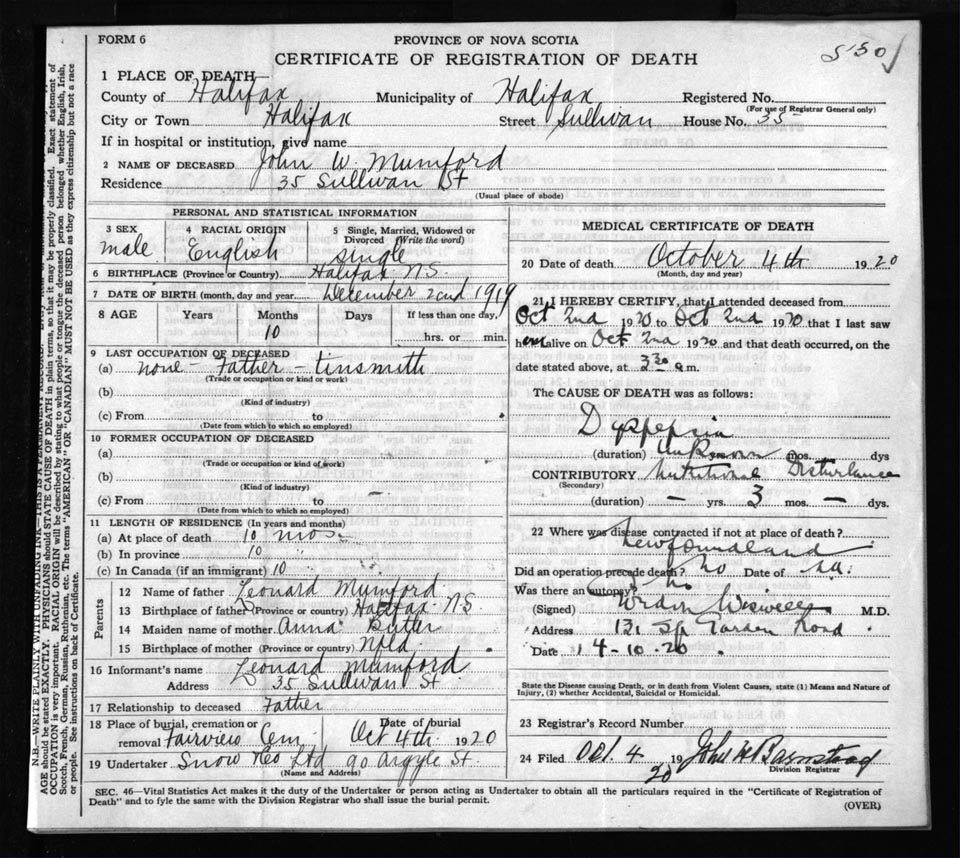 FORM 6
PROVINCE OF NOVA SCOTIA
CERTIFICATE OF REGISTRATION OF DEATH
1 PLACE OF DEATH—
County of Halifax Municipality of Halifax Registered No.
(For use of Registrar General only)
City or Town Halifax Street Sullivan House No. 35
If in hospital or institution, give name
2 NAME OF DECEASED John W. Mumford
Residence 35 Sullivan St
(Usual place of abode)
PERSONAL AND STATISTICAL INFORMATION
3 SEX 4 RACIAL ORIGIN 5 Single, Married, Widowed or Divorced (Write the word)
male English single
6 BIRTHPLACE (Province or Country) Halifax N.S.
7 DATE OF BIRTH (month, day and year) December 22nd 1919
8 AGE Years Months Days If less than one day,
10 hrs. or min.
9 LAST OCCUPATION OF DECEASED
(a) none - Father - tinsmith
(Trade or occupation or kind or work)
(b)
(Kind of industry)
(c) From to
(Date from which to which so employed)
10 FORMER OCCUPATION OF DECEASED
(a)
(Trade or occupation or kind of work)
(b)
(Kind of industry)
(c) From to
(Date from which to which so employed)
11 LENGTH OF RESIDENCE (In years and months)
(a) At place of death 10 mos.
(b) In province 10 "
(c) In Canada (if an immigrant) 10 "
Parents
12 Name of father Leonard Mumford
13 Birthplace of father (Province or country) Halifax N S
14 Maiden name of mother Anna Butler
15 Birthplace of mother (Province or country) Nfld.
16 Informant's name Leonard Mumford
Address 35 Sullivan St
17 Relationship to deceased Father
18 Place of burial, cremation or removal Fairview Cem Date of burial Oct 4th 1920
19 Undertaker Snow & Co Ltd 90 Argyle St.
(Name and Address)
MEDICAL CERTIFICATE OF DEATH
20 Date of death October 4th 1920
(Month, day and year)
21 I HEREBY CERTIFY, that I attended deceased from
Oct 2nd 1920 to Oct 2nd 1920 that I last saw
h im alive on Oct 2nd 1920 and that death occurred, on the
date stated above, at 3.30 a m.
The CAUSE OF DEATH was as follows:
Dyspepsia
(duration) Unknown mos. dys
CONTRIBUTORY Nutritional Disturbance
(Secondary)
(duration) — yrs. 3 mos. — dys.
22 Where was disease contracted if not at place of death?
Newfoundland
Did an operation precede death? No Date of
Was there an autopsy? No
(Signed) Wiswell M.D.
Address 131 Sp Garden Road
Date 4-10-20
State the Disease causing Death, or in death from Violent Causes, state (1) Means and Nature of
Injury, (2) whether Accidental, Suicidal or Homicidal.
23 Registrar's Record Number
24 Filed Oct. 4 1920 John H Barnstead
Division Registrar
SEC. 46—Vital Statistics Act makes it the duty of the Undertaker or person acting as Undertaker to obtain all the particulars required in the "Certificate of Registration of
Death" and to fyle the same with the Division Registrar who shall issue the burial permit.
(OVER)
N.B.—WRITE PLAINLY WITH UNFADING INK—THIS IS A PERMANENT RECORD.
AGE should be stated EXACTLY. PHYSICIANS should STATE CAUSE OF DEATH in plain terms, so that it may be properly classified. Exact statement of
OCCUPATION is very important. RACIAL ORIGIN will be described by stating to what people or tongue the deceased person belonged whether English, Irish,
Scotch, French, German, Russian, Ruthenian, etc. The terms "AMERICAN" OR "CANADIAN" MUST NOT BE USED as they express citizenship but not a race
or people. See instructions on back of Certificate.